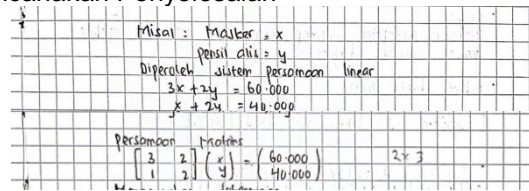 Misal : Masker = x
pensil alis = y
Diperoleh sistem persamaan linear
3x + 2y = 60.000
x + 2y = 40.000
Persamaan Matriks
[ 3 2 ] ( x ) = ( 60.000 ) 2 x 3
[ 1 2 ] ( y ) ( 40.000 )